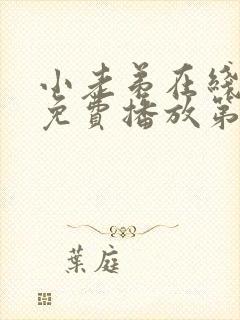 小表弟在线
免費播放第
葉庭